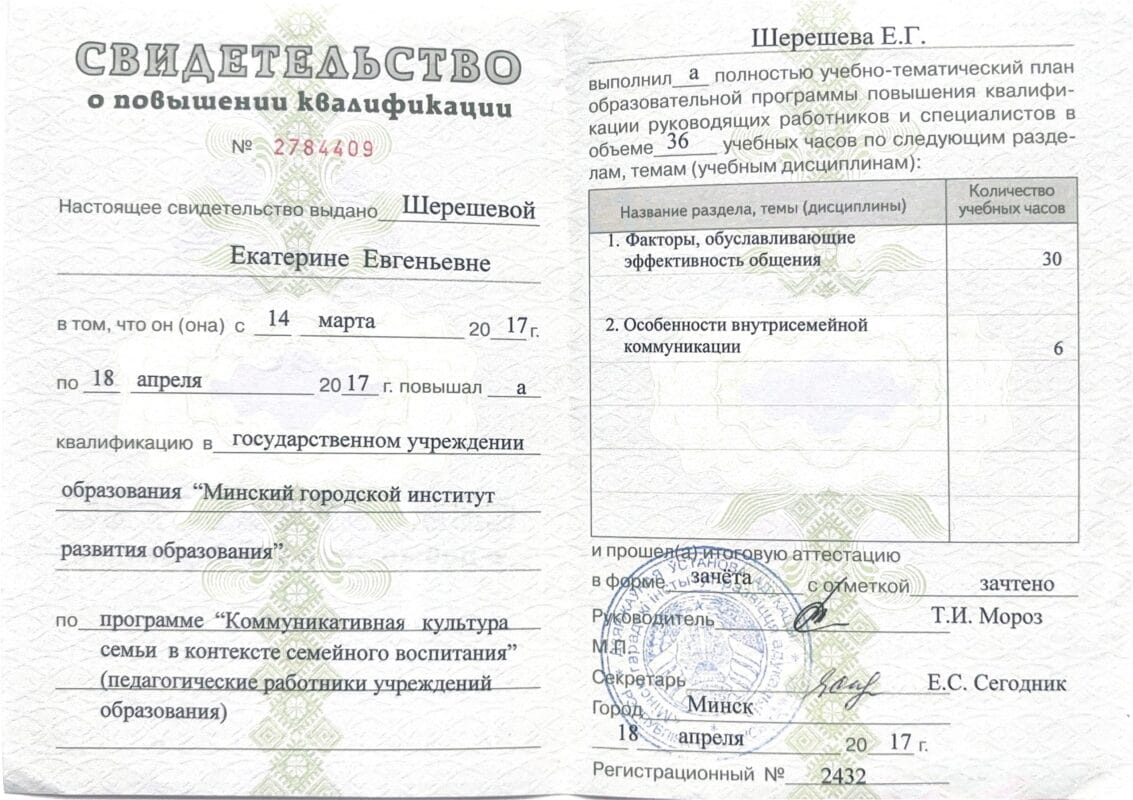 СВИДЕТЕЛЬСТВО
о повышении квалификации
№ 2784409
Настоящее свидетельство выдано Шерешевой
Екатерине Евгеньевне
в том, что он (она) с 14 марта 2017 г.
по 18 апреля 2017 г. повышал а
квалификацию в государственном учреждении
образования “Минский городской институт
развития образования”
по программе “Коммуникативная культура
семьи в контексте семейного воспитания”
(педагогические работники учреждений
образования)
Шерешева Е.Г.
выполнил а полностью учебно-тематический план
образовательной программы повышения квалифи-
кации руководящих работников и специалистов в
объеме 36 учебных часов по следующим разде-
лам, темам (учебным дисциплинам):
Название раздела, темы (дисциплины)
Количество
учебных часов
1. Факторы, обуславливающие
эффективность общения 30
2. Особенности внутрисемейной
коммуникации 6
и прошел(а) итоговую аттестацию
в форме зачёта с отметкой зачтено
Руководитель Т.И. Мороз
М.П.
Секретарь Е.С. Сегодник
Город Минск
18 апреля 2017 г.
Регистрационный № 2432